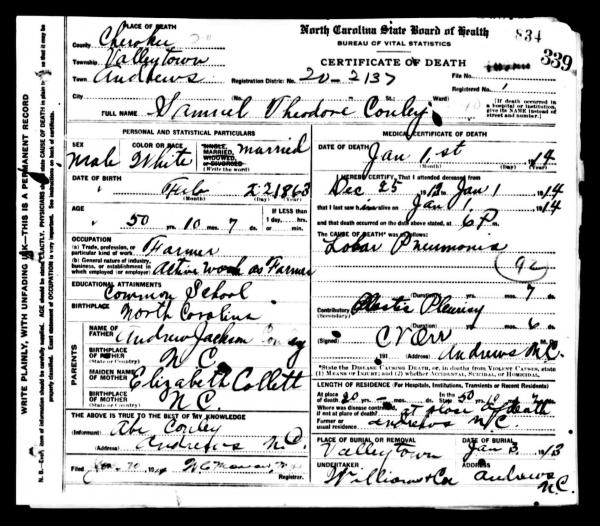 PLACE OF DEATH
County Cherokee
Township Valleytown
Town Andrews
City
North Carolina State Board of Health 834
BUREAU OF VITAL STATISTICS
CERTIFICATE OF DEATH 339
Registration District No. 20-2137 File No.
Registered No. 1
[If death occurred in a hospital or institution, give its NAME instead of street and number.]
FULL NAME Samuel Theodore Conley
PERSONAL AND STATISTICAL PARTICULARS
SEX Male
COLOR OR RACE White
SINGLE, MARRIED, WIDOWED, OR DIVORCED (Write the word) married
DATE OF BIRTH Feb 22 1863
(Month) (Day) (Year)
AGE 50 yrs. 10 mos. 7 ds.
If LESS than 1 day, hrs. or min.
OCCUPATION
(a) Trade, profession, or particular kind of work Farmer
(b) General nature of industry, business, or establishment in which employed (or employer) Active work as Farmer
EDUCATIONAL ATTAINMENTS Common School
BIRTHPLACE North Carolina
(State or Country)
PARENTS
NAME OF FATHER Andrew Jackson Conley
BIRTHPLACE OF FATHER N C
(State or Country)
MAIDEN NAME OF MOTHER Elizabeth Collett
BIRTHPLACE OF MOTHER N C
(State or Country)
THE ABOVE IS TRUE TO THE BEST OF MY KNOWLEDGE
(Informant) Abe Conley
(Address) Andrews N.C.
Filed 1914
Registrar.
MEDICAL CERTIFICATE OF DEATH
DATE OF DEATH Jan 1st 1914
(Month) (Day) (Year)
I HEREBY CERTIFY, That I attended deceased from
Dec 25 1913 Jan 1 1914
that I last saw h alive on Jan 1 1914
and that death occurred on the date above stated, at 6 P m.
The CAUSE OF DEATH* was as follows:
Lobar Pneumonia
(92)
(Duration) yrs. mos. 7 ds.
Contributory Plastic Pleurisy
(Secondary)
(Duration) yrs. mos. 6 ds.
(Signed) C V Orr
191 (Address) Andrews N.C.
*State the DISEASE CAUSING DEATH, or, in deaths from VIOLENT CAUSES, state (1) MEANS OF INJURY; and (2) whether ACCIDENTAL, SUICIDAL, or HOMICIDAL.
LENGTH OF RESIDENCE (For Hospitals, Institutions, Transients or Recent Residents)
At place of death 20 In the State 50 10 7
Where was disease contracted, if not at place of death? at place of death
Former or usual residence Andrews N.C.
PLACE OF BURIAL OR REMOVAL Valleytown
DATE OF BURIAL Jan 3 1913
UNDERTAKER Williams & Co
ADDRESS Andrews N.C.
WRITE PLAINLY, WITH UNFADING INK—THIS IS A PERMANENT RECORD